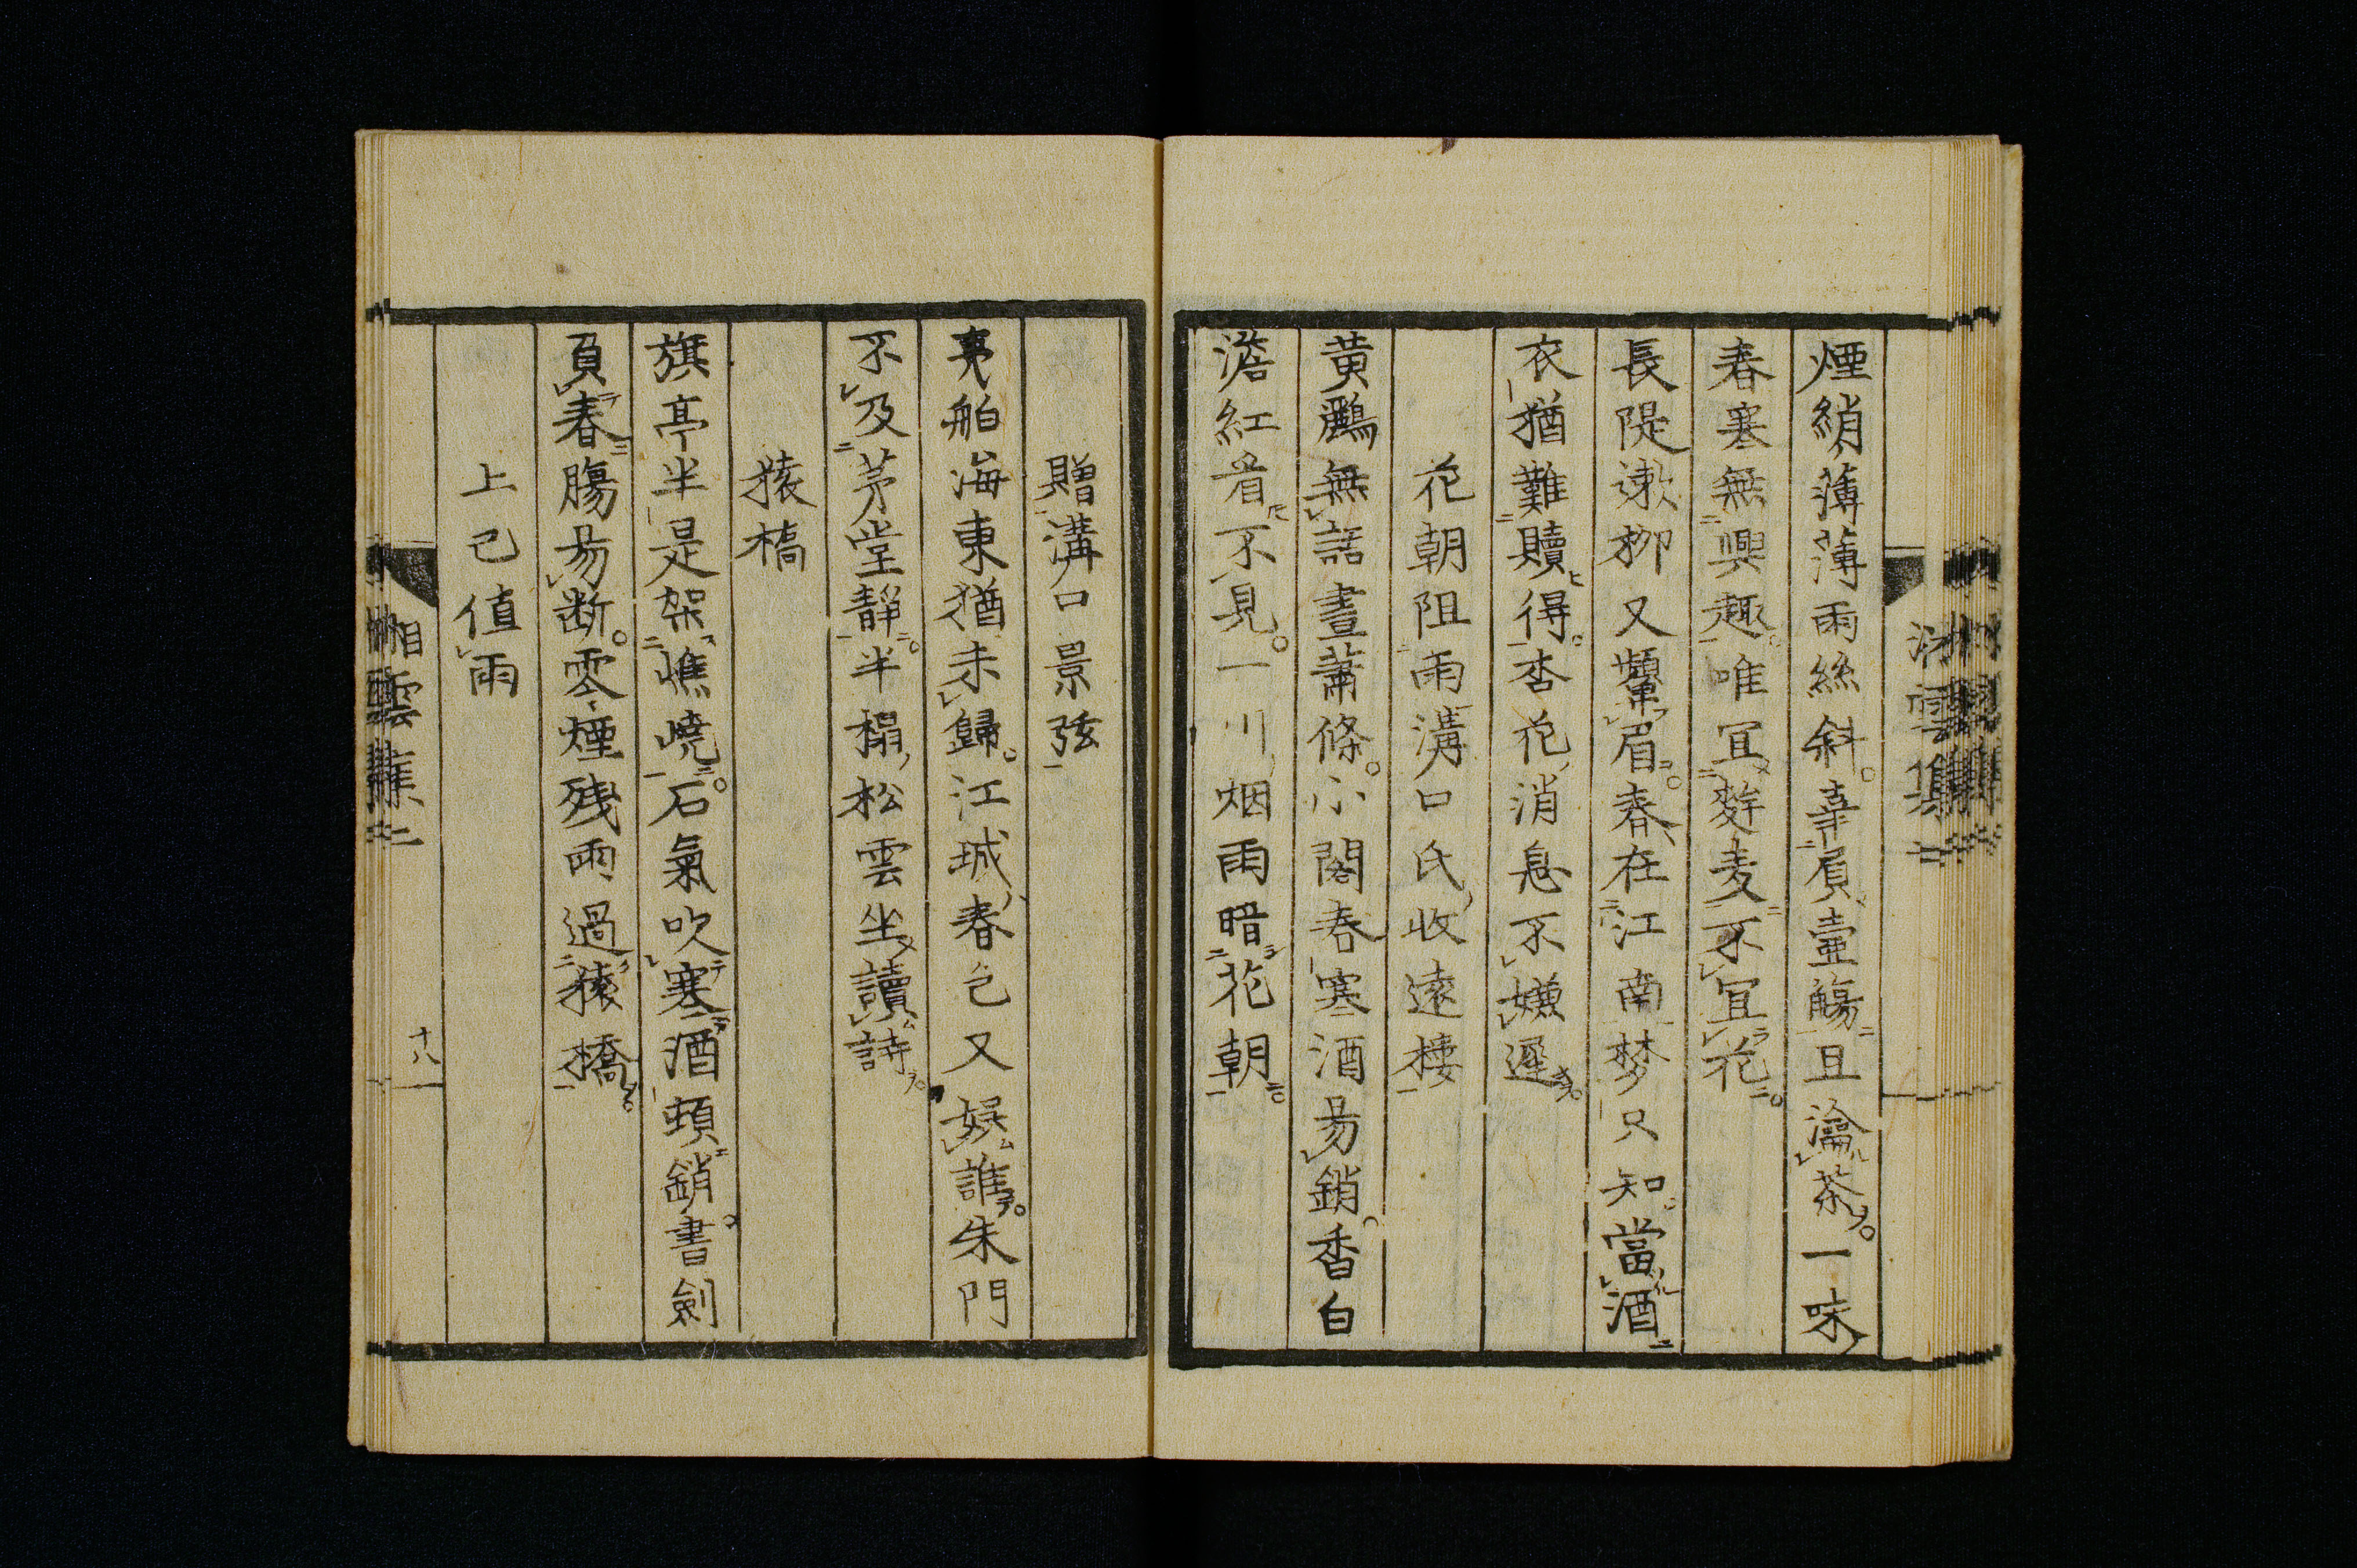 煙綃薄薄雨絲斜。幸負壺觴且瀹茶。一味
春寒無興趣。唯冝麰麦不冝花。
長隄漱柳又顰眉。春在江南梦只知當酒
衣猶難贖得。杏花消息不嫌遲。
花朝阻雨溝口氏收遠樓
黄鸝無語晝蕭條。小閣春寒酒易銷。香白
澹紅看不見。一川烟雨暗花朝。
贈溝口景弦
夷舶海東猶未歸。江城春色又娯誰。朱門
不及茅堂靜。半榻松雲坐讀詩。
猿橋
旗亭半是架嶕嶢。石氣吹寒酒頓銷。書劍
負春腸易断。零煙残雨過猿橋。
上已値雨
湘雲集二
十八